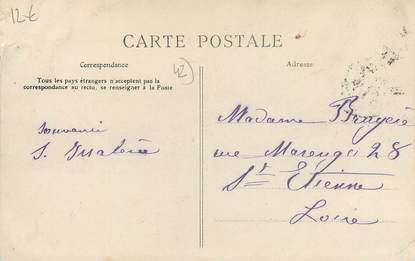 12€
CARTE POSTALE
Correspondance
42
Adresse
Tous les pays étrangers n'acceptent pas la
correspondance au recto, se renseigner à la Poste
Souvenir
S.
Madame
rue Marengo 28
St Etienne
Loire